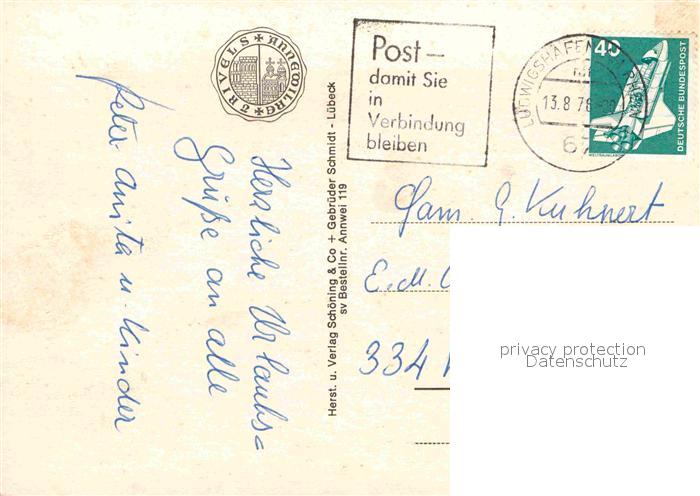 Herzliche Urlaubs=
Grüße an alle
Peter Anita u. Kinder
ANNEWILRE
TRIVELS
Herst. u. Verlag Schöning & Co + Gebrüder Schmidt - Lübeck
sv Bestellnr. Annwei 119
Post –
damit Sie
in
Verbindung
bleiben
LUDWIGSHAFEN AM RHEIN
13.8.76
67
40
DEUTSCHE BUNDESPOST
Fam. G. Kuhnert
E.M.
334
privacy protection
Datenschutz